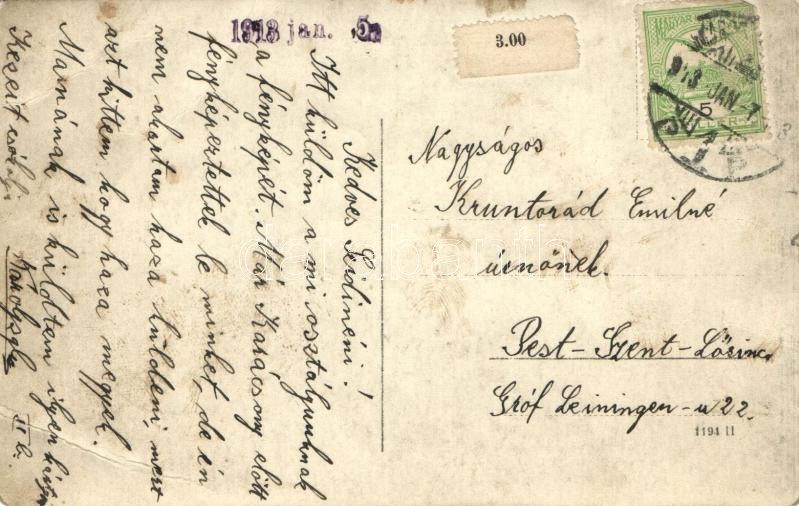 1913 jan. 5
3.00
MAGYAR
913 JAN. 7
5
Kedves Lidinéni!
Itt küldöm a mi osztályunknak
a fényképét. Már Karácsony előtt
fényképeztettek le minket, de én
nem akartam haza küldeni, mert
azt hittem hogy haza megyek.
Mamának is küldtem ilyen
Kezeit csókolja
II b.
Nagyságos
Kruntorád Emilné
úrnőnek.
Pest-Szent-Lőrinc
Gróf Leiningen-u 22.
1194 II
darabanth